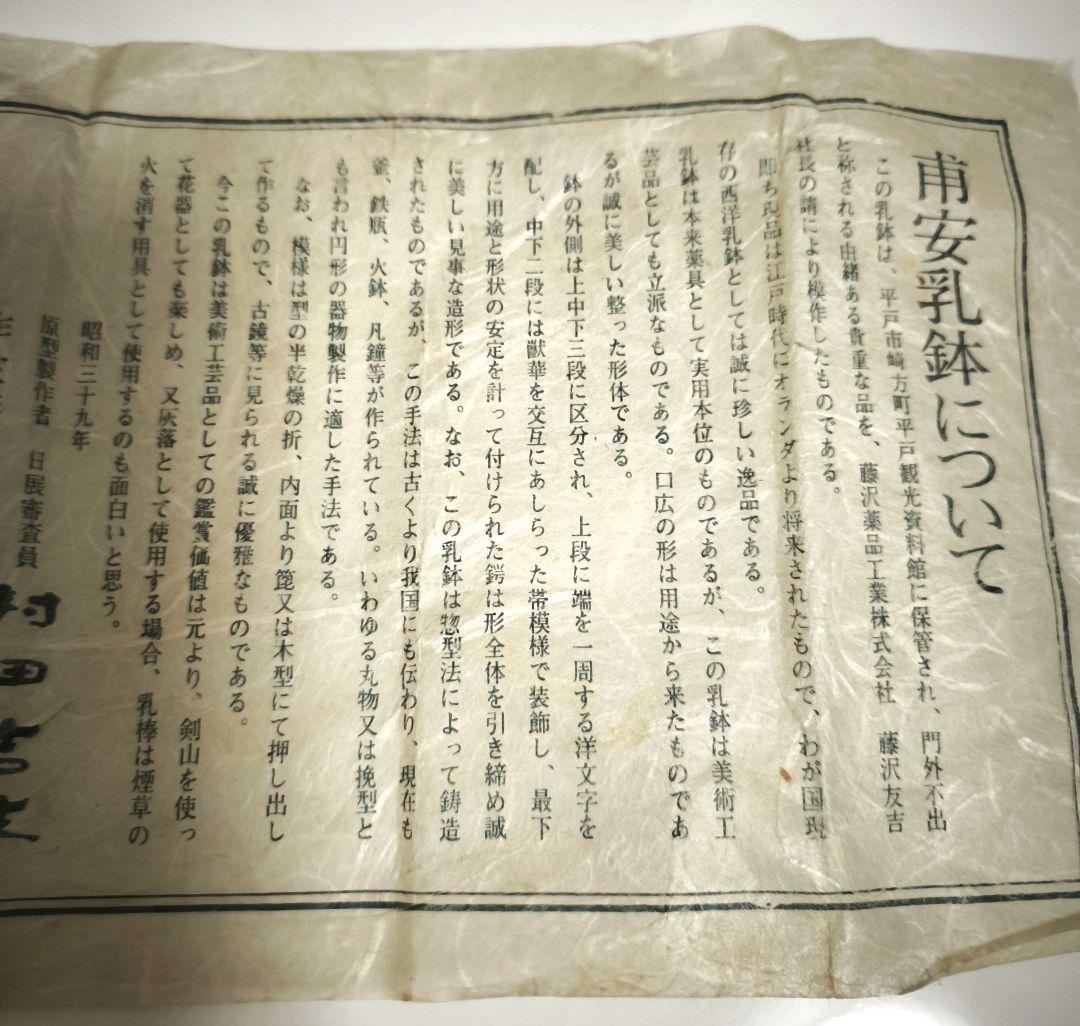 甫安乳鉢について
この乳鉢は、平戸市崎方町平戸観光資料館に保管され、門外不出
と称される由緒ある貴重な品を、藤沢薬品工業株式会社　藤沢友吉
社長の請により模作したものである。
即ち現品は江戸時代にオランダより将来されたもので、わが国現
存の西洋乳鉢としては誠に珍しい逸品である。
乳鉢は本来薬具として実用本位のものであるが、この乳鉢は美術工
芸品としても立派なものである。口広の形は用途から来たものであ
るが誠に美しい整った形体である。
鉢の外側は上中下三段に区分され、上段に端を一周する洋文字を
配し、中下二段には獣華を交互にあしらった帯模様で装飾し、最下
方に用途と形状の安定を計って付けられた鍔は形全体を引き締め誠
に美しい見事な造形である。なお、この乳鉢は惣型法によって鋳造
されたものであるが、この手法は古くより我国にも伝わり、現在も
釜、鉄瓶、火鉢、凡鐘等が作られている。いわゆる丸物又は挽型と
も言われ円形の器物製作に適した手法である。
なお、模様は型の半乾燥の折、内面より箆又は木型にて押し出し
て作るもので、古鏡等に見られる誠に優雅なものである。
今この乳鉢は美術工芸品としての鑑賞価値は元より、剣山を使っ
て花器としても楽しめ、又灰落として使用する場合、乳棒は煙草の
火を消す用具として使用するのも面白いと思う。
昭和三十九年
原型製作者　日展審査員